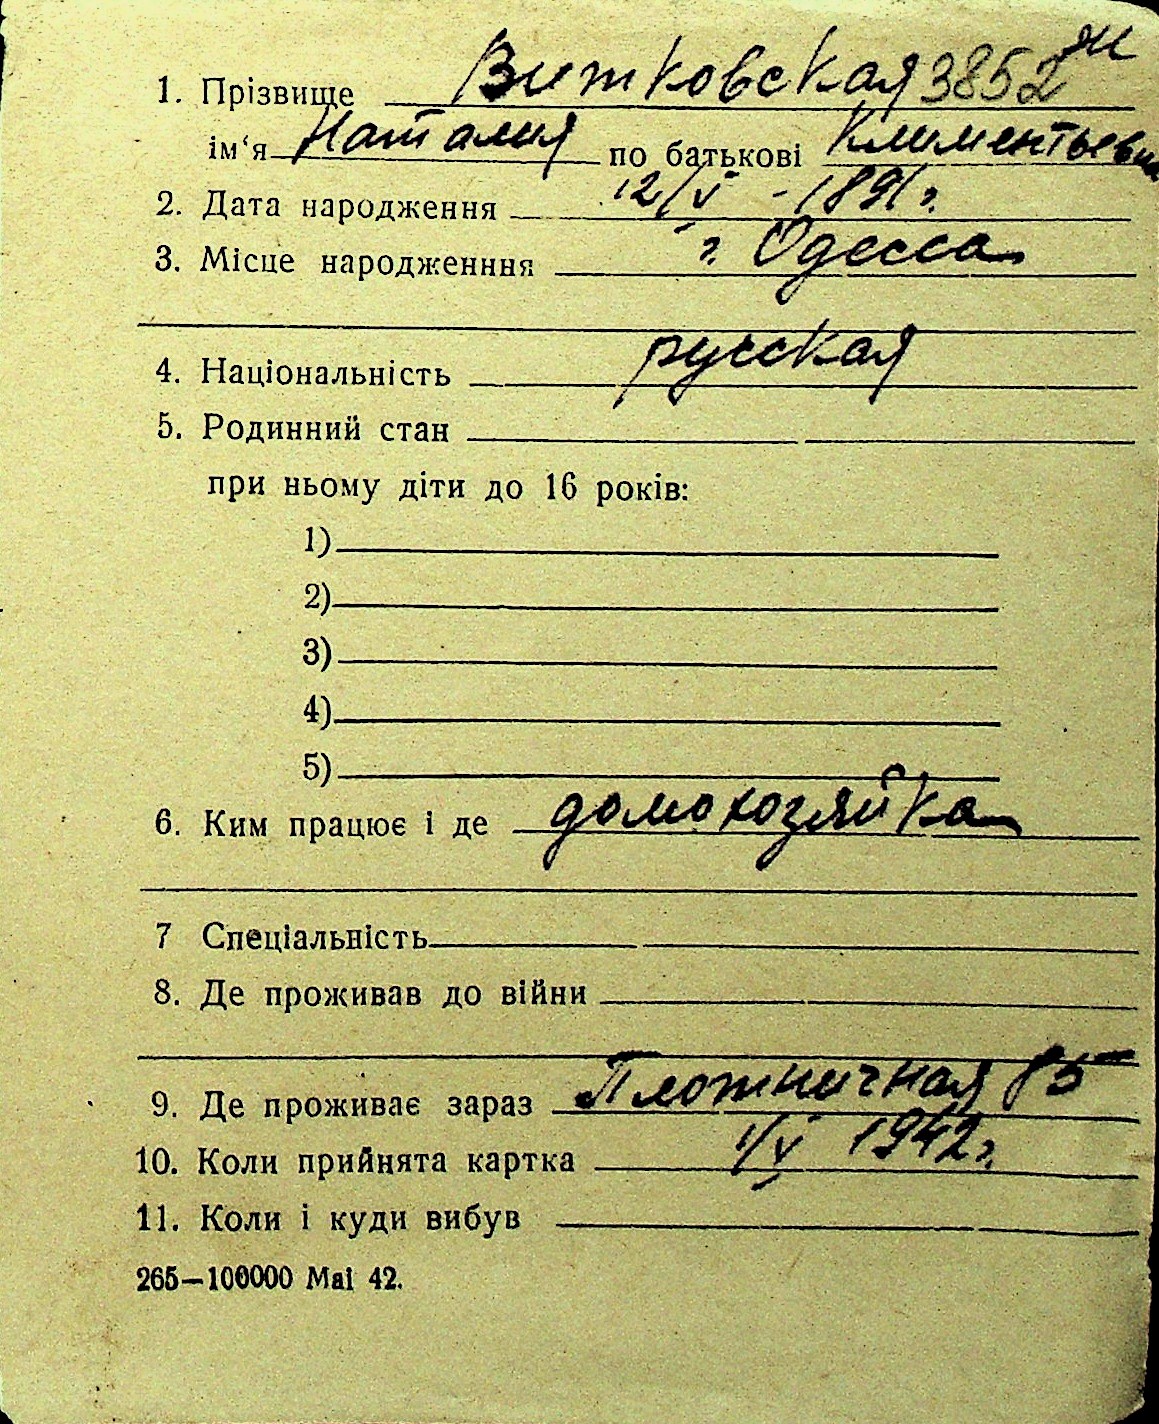 1. Прізвище Витковская 3852
ім‘я Наталия по батькові Климентьевна
2. Дата народження 12/V - 1891 г.
3. Місце народженння г. Одесса
4. Національність русская
5. Родинний стан
при ньому діти до 16 років:
1)
2)
3)
4)
5)
6. Ким працює і де домохозяйка
7 Спеціальність
8. Де проживав до війни
9. Де проживає зараз 85
10. Коли прийнята картка 1/V 1942 г.
11. Коли і куди вибув
265—100000 Маі 42.